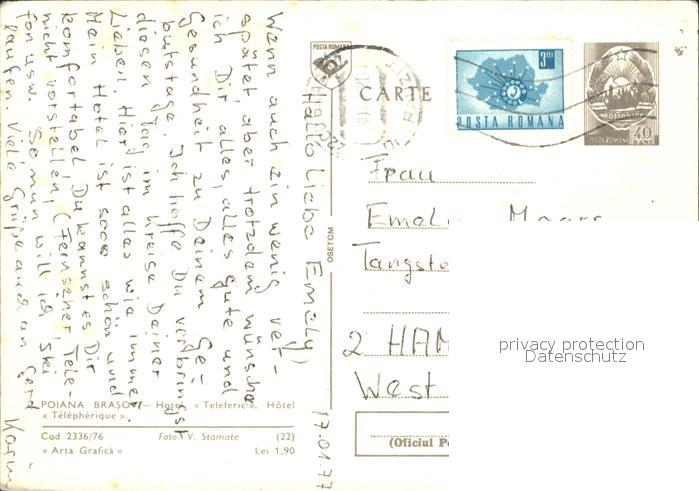 Hallo liebe Emely,
Wenn auch ein wenig ver-
spätet aber trotzdem wünsche
ich Dir alles, alles gute und
Gesundheit zu Deinem Ge-
burtstage. Ich hoffe Du verbringst
diesen Tag im Kreise Deiner
Lieben. Hier ist alles wie immer.
Mein Hotel ist sooo schön und
komfortabel Du kannst es Dir
nicht vorstellen, (Fernseher, Tele-
fon usw. So nun will ich Ski
laufen. Viele Grüße auch an Gerd
Karin
17.01.77
POSTA ROMANA
CARTE
3 LEI
POSTA ROMANA
ROMANIA
POSTA ROMANA
40
BANI
OSETOM
Frau
Emel
Tangste
2 HAM
West
(Oficiul Po
privacy protection
Datenschutz
POIANA BRAȘOV — Hotel « Teleferic », Hôtel
« Téléphérique ».
Cod 2336/76 Foto: V. Stamate (22)
« Arta Grafică » Lei 1,90